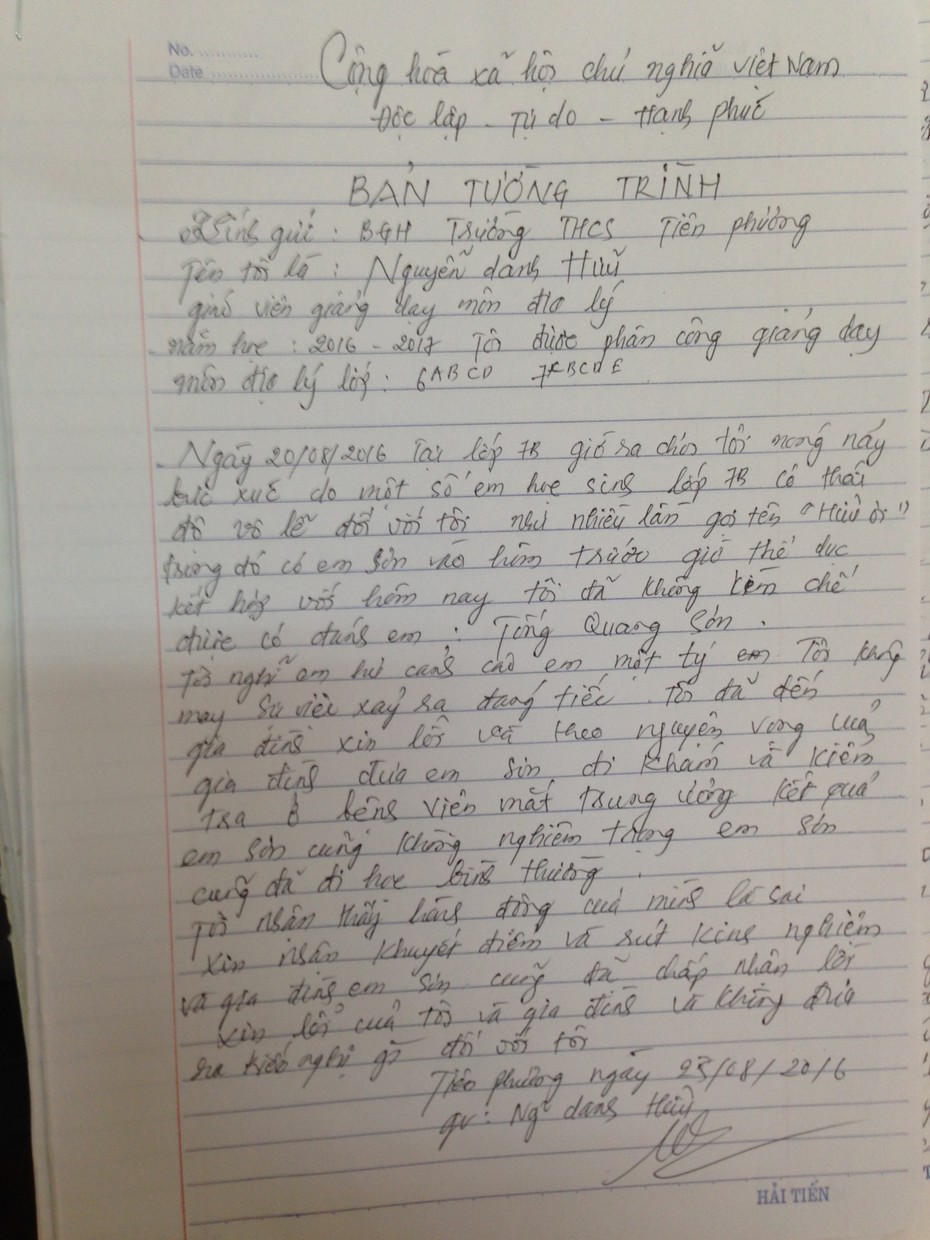 No. ............
Date ....................
Cộng hoà xã hội chủ nghĩa việt Nam
Độc lập - Tự do - Hạnh phúc
BẢN TƯỜNG TRÌNH
Kính gửi : BGH Trường THCS Tiên phương
Tên tôi là : Nguyễn danh Hữu
giáo viên giảng dạy môn địa lý
năm học : 2016 - 2017 Tôi được phân công giảng dạy
môn địa lý lớp : 6ABCD 7ABCDE
Ngày 20/08/2016 Tại lớp 7B giờ ra chơi tôi nóng nảy
bức xúc do một số em học sinh lớp 7B có thái
độ vô lễ đối với tôi như nhiều lần gọi tên "Hữu ơi"
trong đó có em Sơn vào hôm trước giờ thể dục
kết hợp với hôm nay tôi đã không kìm chế
được có đánh em : Tống Quang Sơn .
Tôi nghĩ em hư cảnh cáo em một tý Tôi không
may sự việc xảy ra đáng tiếc . Tôi đã đến
gia đình xin lỗi và theo nguyện vọng của
gia đình đưa em Sơn đi khám và kiểm
tra ở bệnh viện mắt trung ương kết quả
em Sơn cũng không nghiêm trọng em Sơn
cũng đã đi học bình thường .
Tôi nhận thấy hành động của mình là sai
xin nhận khuyết điểm và rút kinh nghiệm
và gia đình em Sơn cũng đã chấp nhận lời
xin lỗi của tôi và gia đình và không đưa
ra kiến nghị gì đối với tôi
Tiên phương ngày 23/08/2016
gv : Ng~ danh Hữu
HẢI TIẾN